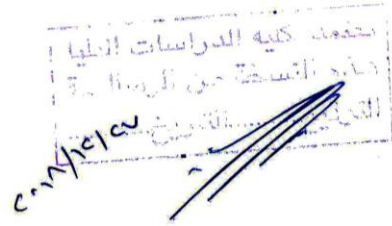 تعتمد كلية الدراسات العليا
هذه النسخة من الرسالة
التوقيع.......التاريخ.......
٢٠٠٨/١٢/٢٧